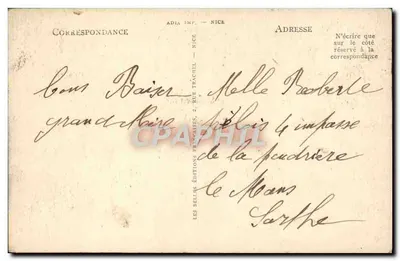 ADIA IMP. - NICE
CORRESPONDANCE
ADRESSE
N'écrire que
sur le côté
réservé à la
correspondance
LES BELLES ÉDITIONS 2, RUE TRACHEL - NICE
Bons Baiser
grand Mère
Melle Roberte
4 impasse
de la poudrière
le Mans
Sarthe
CPAPHIL